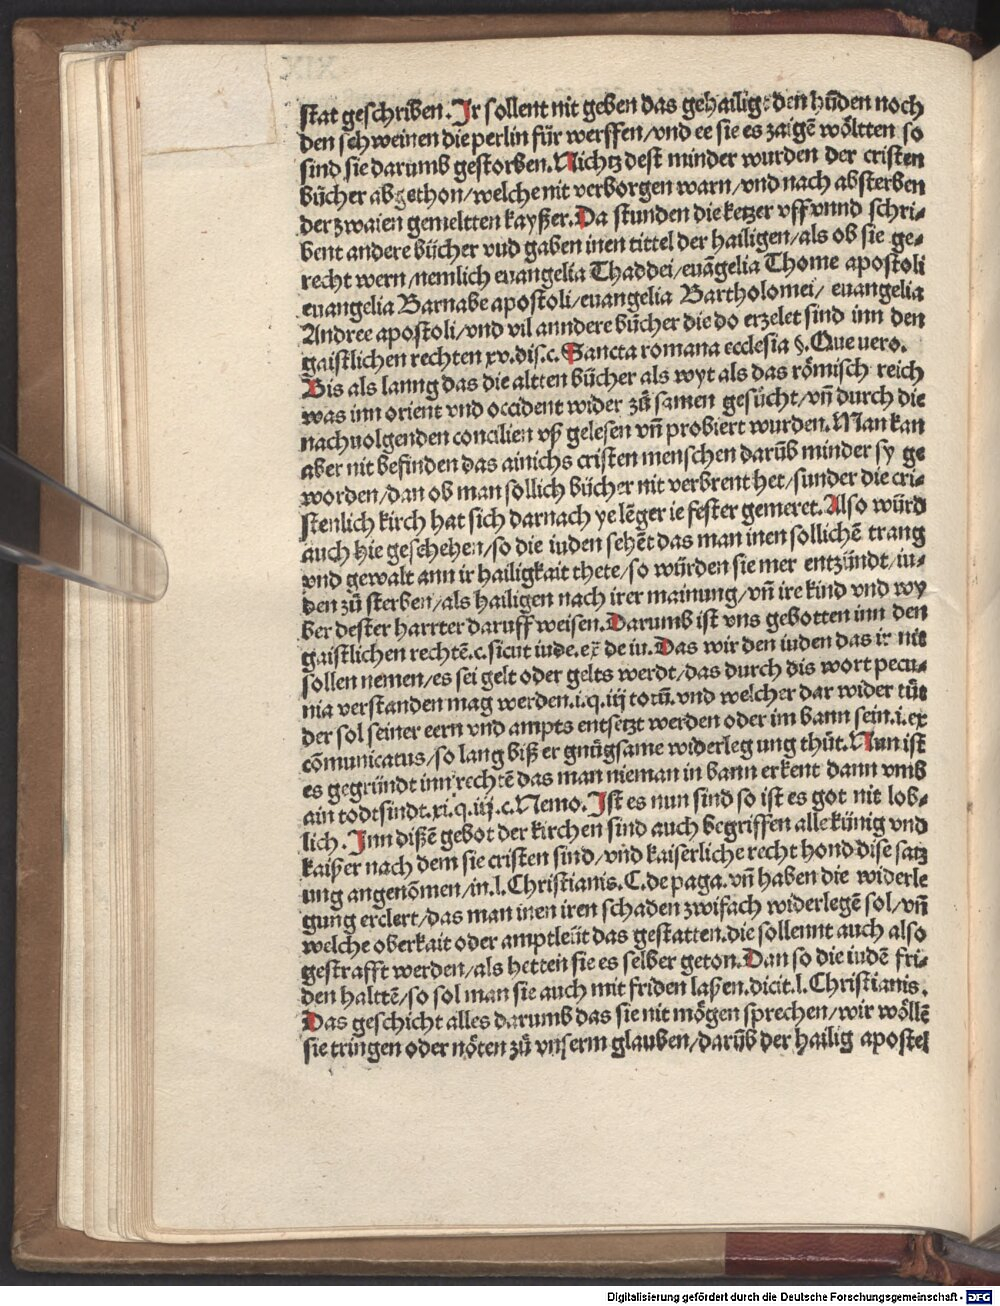 stat geschriben. Jr sollent nit geben das gehailigt den hūden noch
den schweinen die perlin für werffen/vnd ee sie es zaigē wőltten so
sind sie darumb gestorben. Nichtz dest minder wurden der cristen
bůcher abgethon/welche nit verborgen warn/vnd nach absterben
der zwaien gemeltten kayßer. Da stunden die ketzer vff vnnd schri-
bent andere bücher vnd gaben inen tittel der hailigen/als ob sie ge-
recht wern/nemlich euangelia Thaddei/euāgelia Thome apostoli
euangelia Barnabe apostoli/euangelia Bartholomei/ euangelia
Andree apostoli/vnd vil anndere bůcher die do erzelet sind inn den
gaistlichen rechten xv. dis. c. Sancta romana ecclesia §. Que uero.
Bis als lanng das die altten bücher als wyt als das rőmisch reich
was inn orient vnd occident wider zů samen gesůcht/vn̄ durch die
nachuolgenden concilien vß gelesen vn̄ probiert wurden. Man kan
aber nit befinden das ainichs cristen menschen darūb minder sy ge
worden/dan ob man sollich bücher nit verbrent het/sunder die cri-
stenlich kirch hat sich darnach ye lēger ie fester gemeret. Also würd
auch hie geschehen/so die iuden sehēt das man inen sollichē trang
vnd gewalt ann ir hailigkait thete/so würden sie mer entzündt/iu-
den zů sterben/als hailigen nach irer mainung/vn̄ ire kind vnd wy
ber dester harrter daruff weisen. Darumb ist vns gebotten inn den
gaistlichen rechtē. c. sicut iude. ex̄ de iu. Das wir den iuden das ir nit
sollen nemen/es sei gelt oder gelts werdt/das durch dis wort pecu-
nia verstanden mag werden. i. q. iij totū. vnd welcher dar wider tůt
der sol seiner eern vnd ampts entsetzt werden oder im bann sein. i. ex
cōmunicatus/so lang biß er gnůgsame widerleg ung thůt. Nun ist
es gegründt inn rechtē das man nieman in bann erkent dann vmb
ain todtsindt. xi. q. iij. c. Nemo. Jst es nun sind so ist es got nit lob-
lich. Jnn dißē gebot der kirchen sind auch begriffen alle künig vnd
kaißer nach dem sie cristen sind/vnd kaiserliche recht hond dise satz
ung angenōmen/in. l. Christianis. C. de paga. vn̄ haben die widerle
gung erclert/das man inen iren schaden zwifach widerlegē sol/vn̄
welche oberkait oder amptleüt das gestatten. die sollennt auch also
gestrafft werden/als hetten sie es selber geton. Dan so die iudē fri-
den halttē/so sol man sie auch mit friden laßen. dicit. l. Christianis.
Das geschicht alles darumb das sie nit mőgen sprechen/wir wőllē
sie tringen oder nőten zů vnserm glauben/darūb der hailig apostel
Digitalisierung gefördert durch die Deutsche Forschungsgemeinschaft - DFG